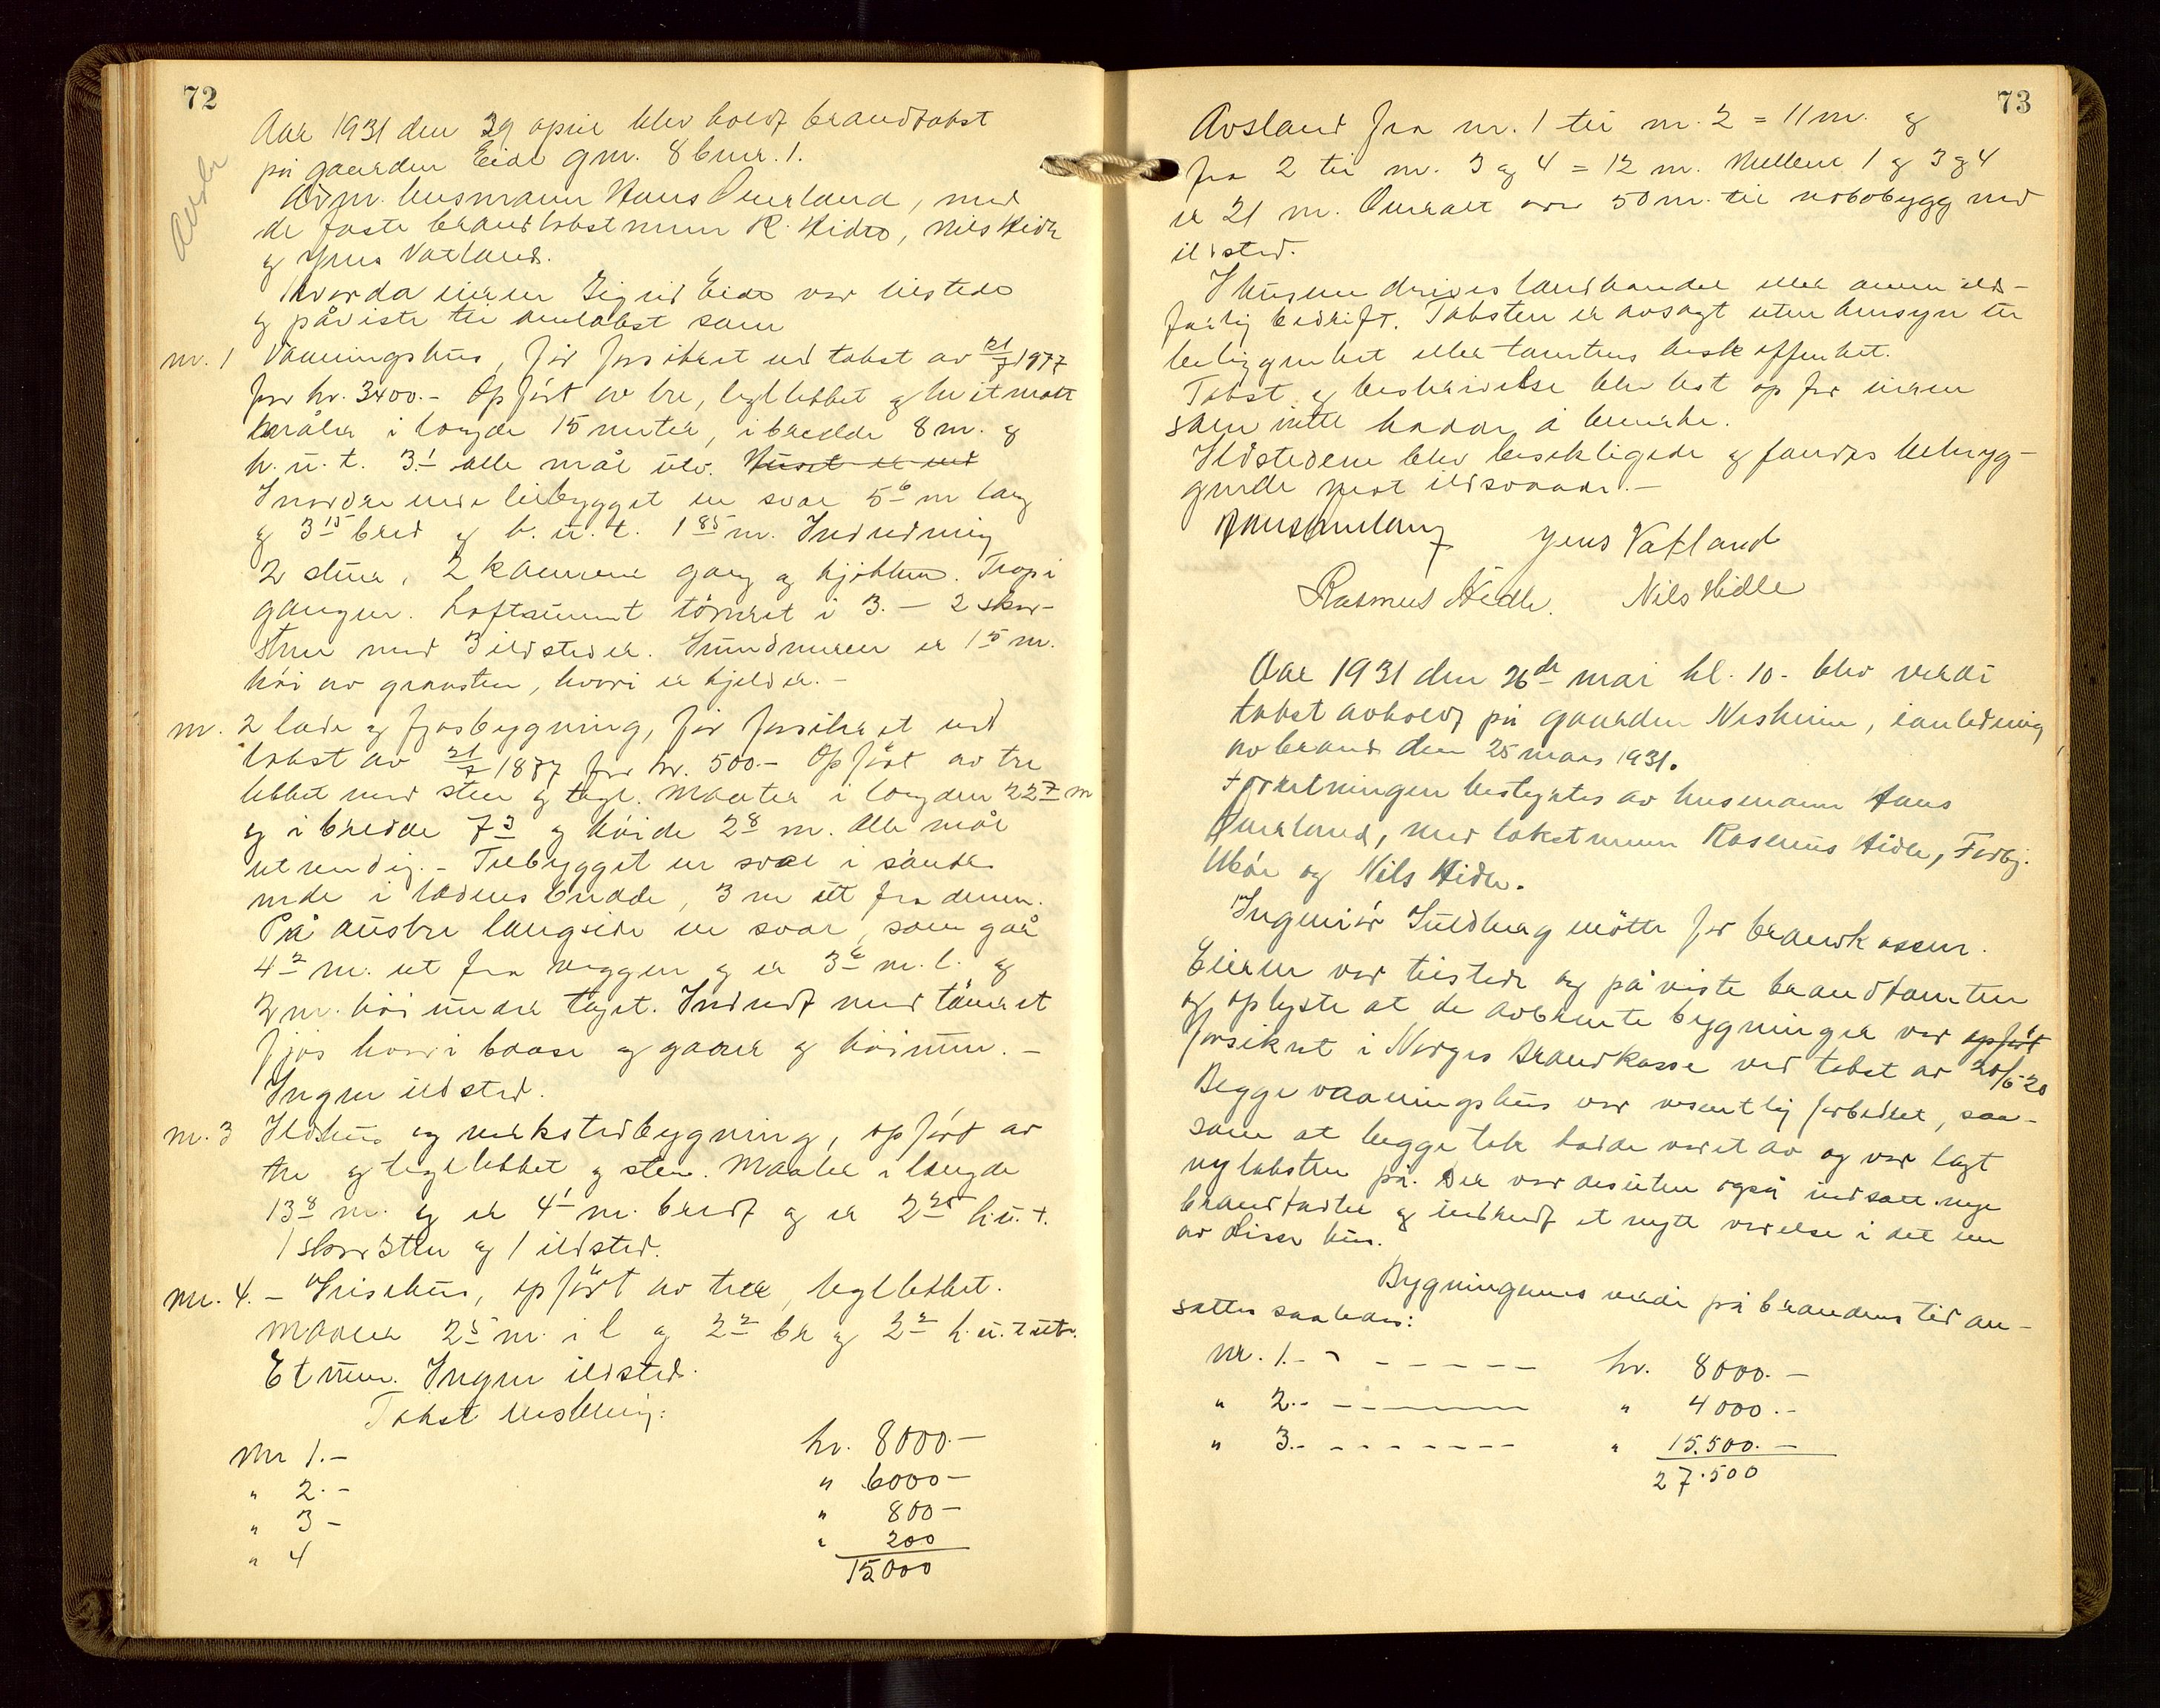 72
Aar 1931 den 29 april blev holdt brandtakst
på gaarden Eide gnr. 8 bnr. 1.
Adm. lensmann Hans Aurland, med
de faste brandtakstmenn R. Hidle, Nils Hidle
og Jens Vatland.
Hvorda eieren Sigrid Eide var tilstede
og påviste til omtakst som
nr. 1 Vaaningshus, før forsikret ved takst av 21/7 1877
for kr. 3400.- Opført av tre, tegltekket og hvitmalt
maaler i lengde 15 meter, i bredde 8 m. og
h. u. t. 3.1 alle mål utv. Huset er ved
I nordre ende tilbygget en sval 5 6 m lang
og 3 15 bred og h. u. t. 1 85 m. Indredning
2 stuer, 2 kammer gang og kjøkken. Trap i
gangen. Loftsrummt tømret i 3. - 2 skor-
stener med 3 ildsteder. Grundmuren er 1 5 m.
høi av graasten, hvori er kjelder. -
nr. 2 lade og fjøsbygning, før forsikret ved
takst av 21/7 1887 for kr. 500.- Opført av tre
tekket med sten og tegl. Maaler i lengden 22 7 m
og i bredde 7 3 og høide 2 8 m. Alle mål
utvendig. - Tilbygget en sval i søndre
ende i ladens bredde, 3 m ut fra denne.
På austre langside en sval, som går
4 2 m. ut fra veggen og er 3 6 m. l. og
2 m. høi under taget. Indredt med tømret
fjøs hvori baase og gaarer og høirum. -
Ingen ildsted.
nr. 3 Ildhus og verkstedbygning, opført av
tre og tegltekket og sten. Maaler i lengde
13 8 m. og er 4 1 m. bredt og er 2 25 h. u. t.
1 skorsten og 1 ildsted.
nr. 4. - Grisehus, opført av tree, tegltekket.
Maaler 2 5 m. i l og 2 2 br og 2 2 h. u. t utv.
Et rum. Ingen ildsted.
Takst
Nr 1.- kr. 8000.-
" 2.- " 6000-
" 3- " 800-
" 4 " 200
15000
73
Avstand fra nr. 1 til nr. 2 = 11 m. og
fra 2 til nr. 3 og 4 = 12 m. Mellem 1 og 3 og 4
er 21 m. Overalt over 50 m. til nabobygg med
ildsted.
I husene drives landhandel eller annen ild-
farlig bedrift. Taksten er avsagt uten hensyn til
beliggenhet eller tomtens beskaffenhet.
Takst og beskrivelse blev lest op for eieren
som intet hadde å bemerke.
Ildstedene blev besiktigede og fandtes betryg-
gende mot ildsvaade. -
Jens Vatland
Rasmus Hidle. Nils Hidle
Aar 1931 den 26de mai kl. 10.- blev verdi
takst avholdt på gaarden Nesheim, i anledning
av brand den 25 mars 1931.
Forretningen bestyrtes av lensmann Hans
Aurland, med takstmenn Rasmus Hidle, Torbj.
og Nils Hidle.
Ingeniør Guldberg møtte for brandkassen.
Eieren var tilstede og påviste brandtomten
og oplyste at de avbrente bygninger var opført
forsikret i Norges Brandkasse ved takst av 20/6-20
Begge vaaningshus var vesentlig forbedret, saa-
som at begge tak hadde været av og var lagt
ny taksten på. Der var desuten også indsatt nye
brandtavler og indredt et nytt værelse i det ene
av disse hus.
Bygningenes verdi på brandens tid an-
sattes saaledes:
Nr. 1.- - - - - - - kr. 8000.-
" 2.- - - - - - " 4000.-
" 3.- - - - - - - " 15.500.-
27.500